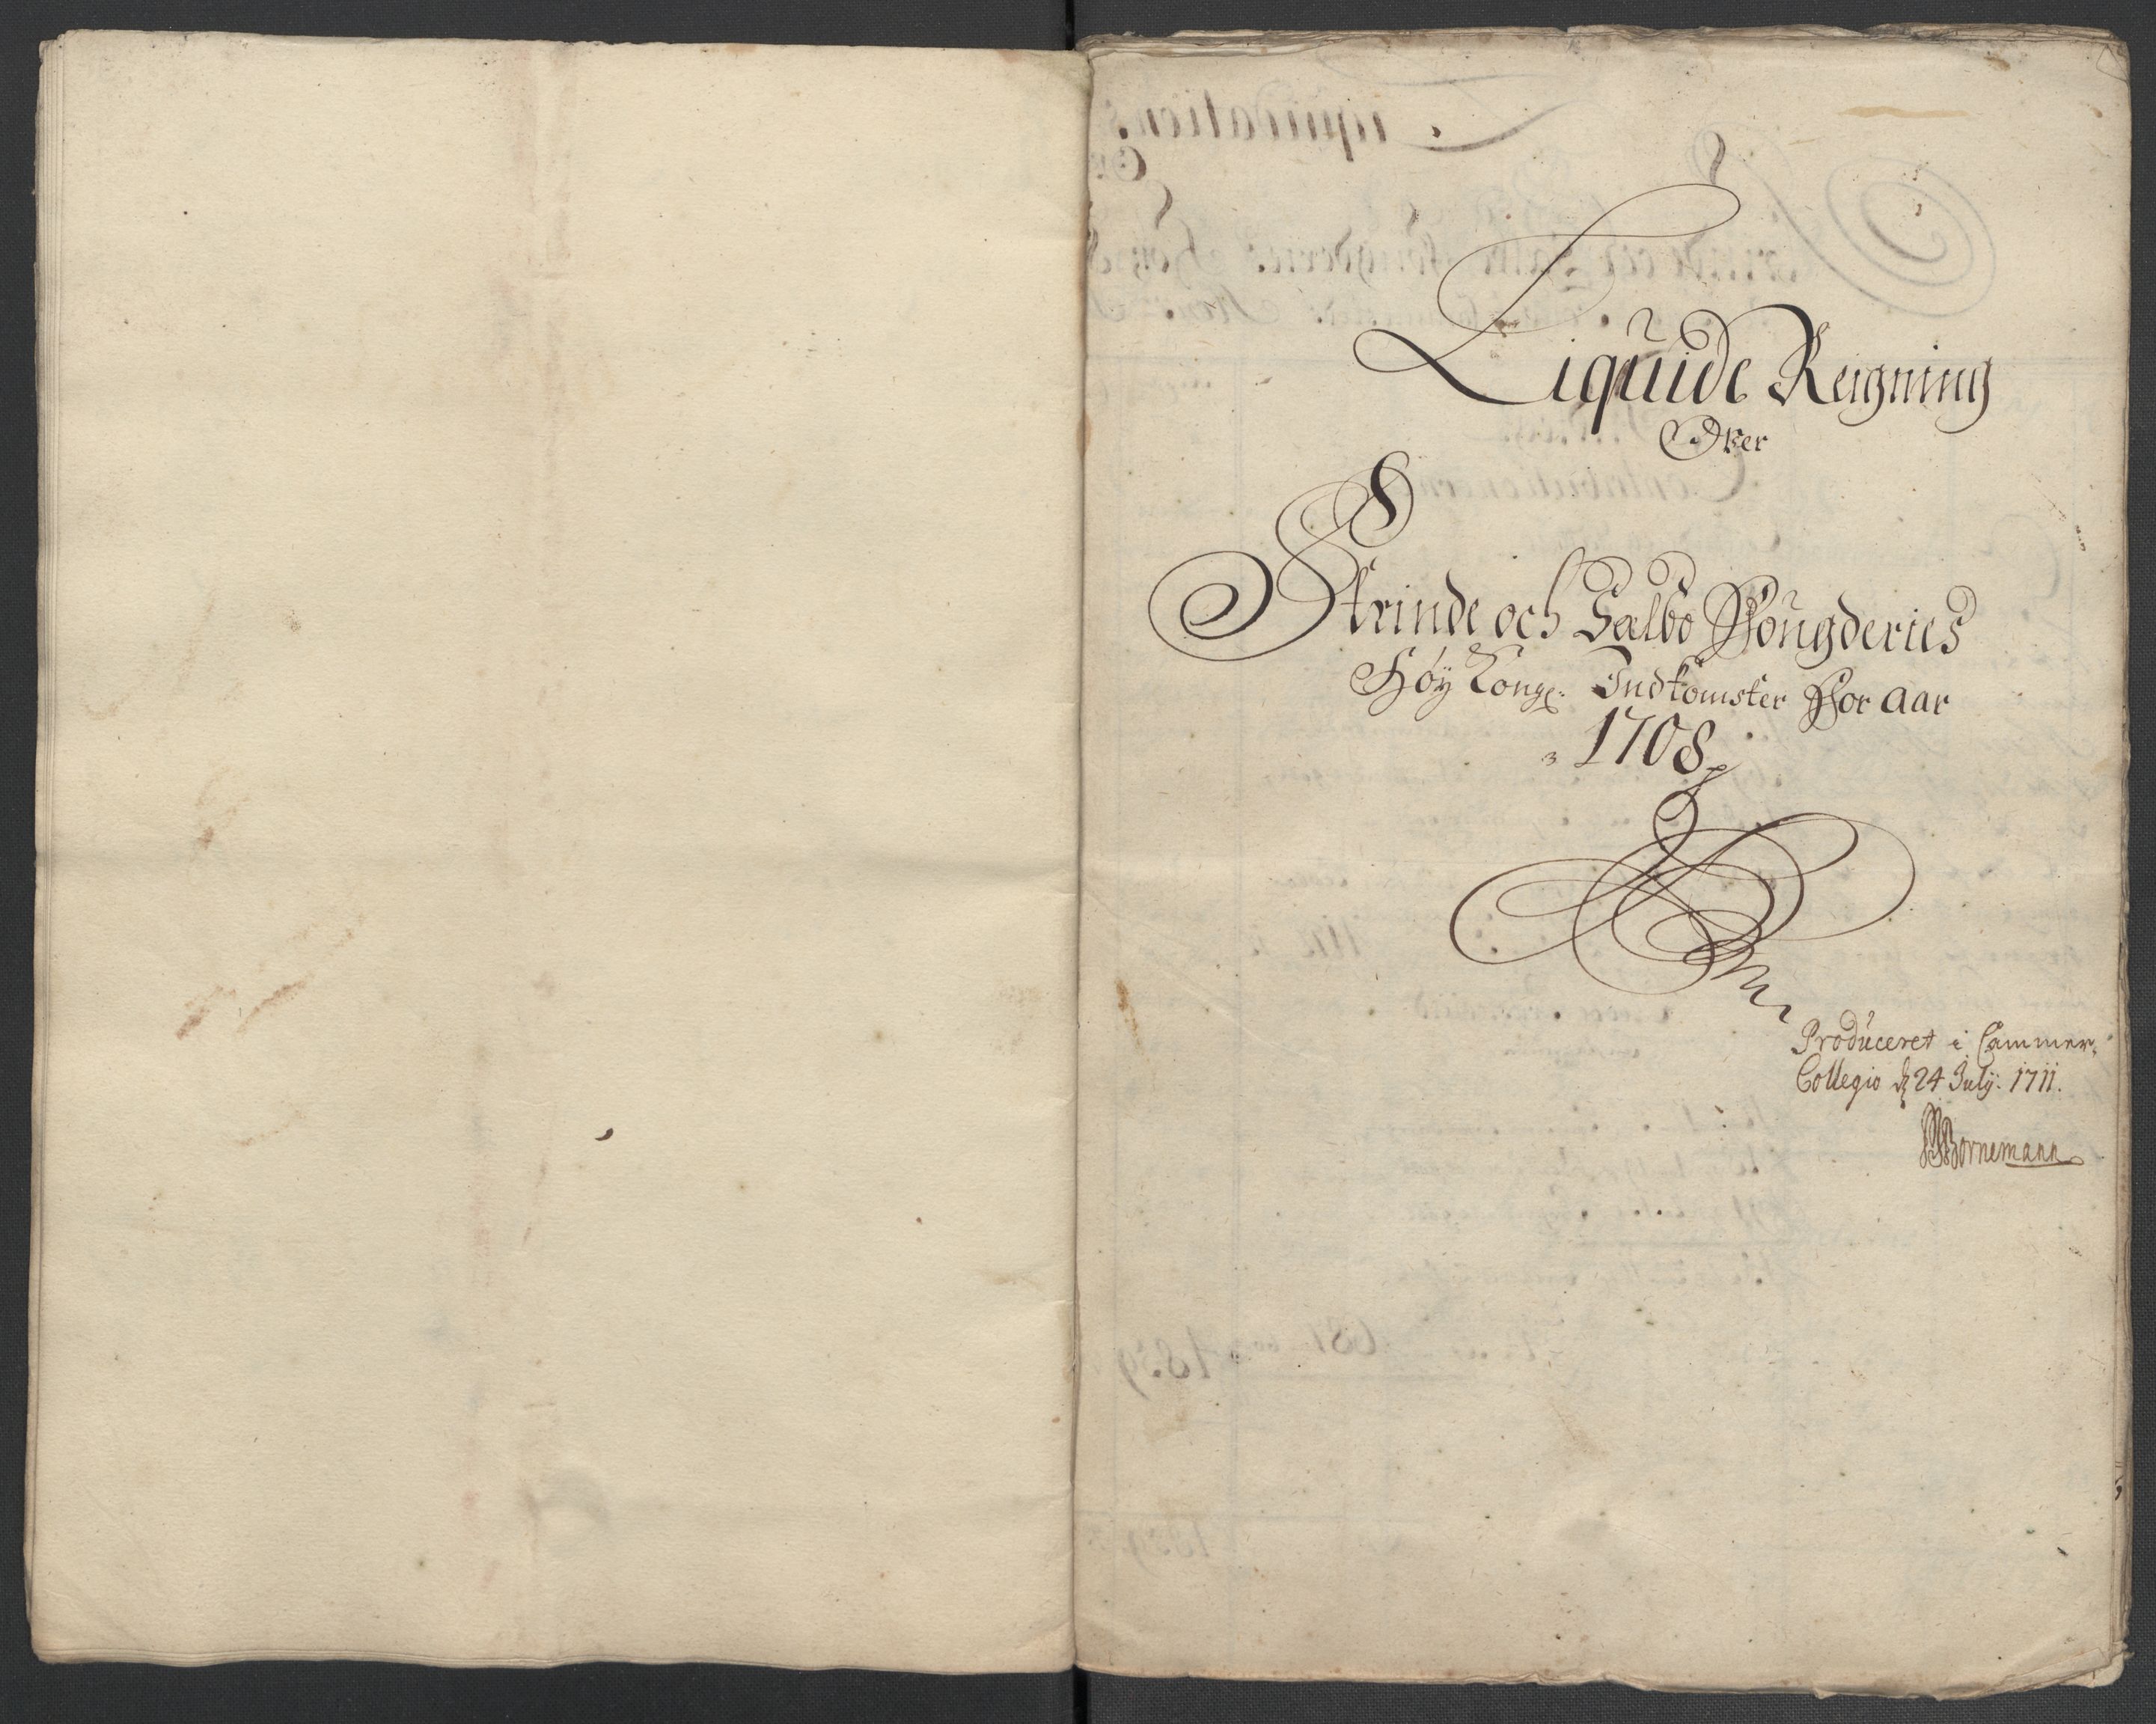 Liquide Reigning
Over
Strinde och Sælbo Fougderies
Høy Kongl: Indkomster For aar
1708
Produceret i Cammer-
Collegio d 24 July: 1711.
Bornemann